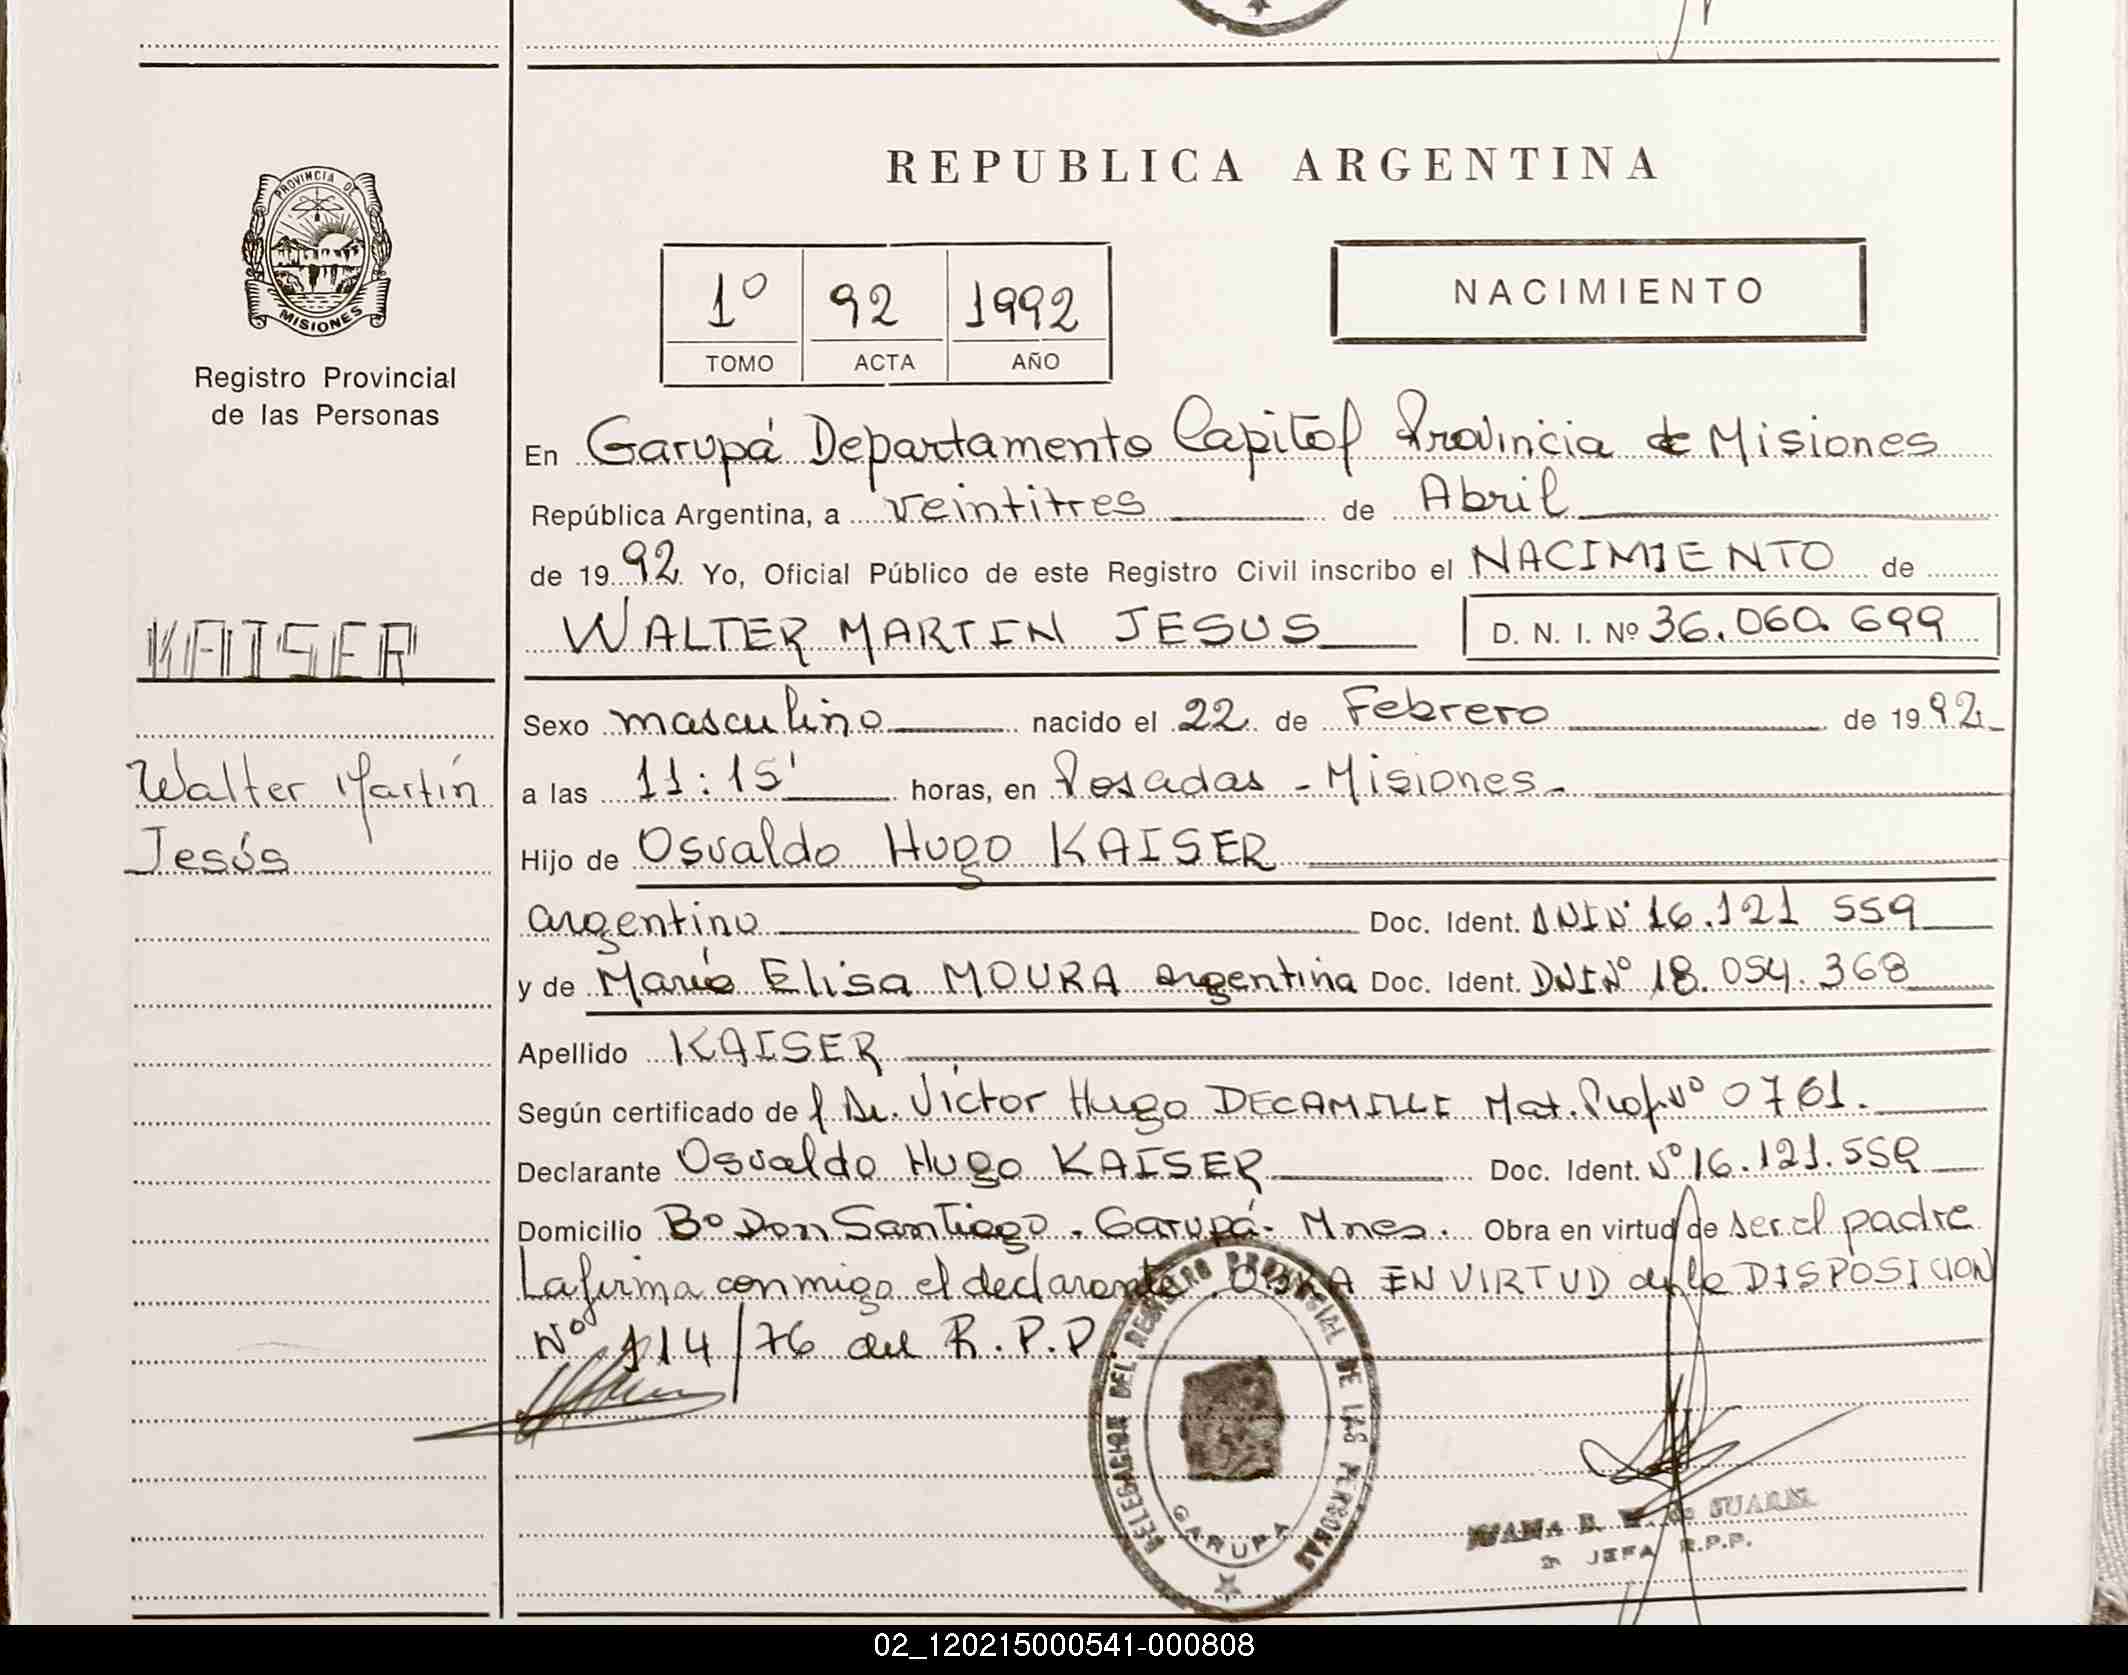 PROVINCIA DE
MISIONES
Registro Provincial
de las Personas
KAISER
Walter Martín
Jesús
REPUBLICA ARGENTINA
1º 92 1992
TOMO ACTA AÑO
NACIMIENTO
En Garupá Departamento Capital Provincia de Misiones
República Argentina, a veintitres de Abril
de 1992. Yo, Oficial Público de este Registro Civil inscribo el NACIMIENTO de
WALTER MARTIN JESUS D. N. I. Nº 36.060.699
Sexo masculino nacido el 22 de Febrero de 1992.
a las 11:15' horas, en Posadas - Misiones.
Hijo de Osvaldo Hugo KAISER
argentino Doc. Ident. DNI Nº 16.121 559
y de María Elisa MOURA argentina Doc. Ident. DNI Nº 18.054.368
Apellido KAISER
Según certificado de Dr. Víctor Hugo DECAMILLI Mat. Prof. Nº 0761.
Declarante Osvaldo Hugo KAISER Doc. Ident. Nº 16.121.559
Domicilio Bº Don Santiago. Garupá- Mnes. Obra en virtud de ser el padre
La firma conmigo el declarante. OBRA EN VIRTUD de la DISPOSICION
Nº 114/76 del R.P.P.
DELEGACION DEL REGISTRO PROVINCIAL DE LAS PERSONAS
GARUPA
JUANA B. de SUAREZ
JEFA R.P.P.
02_120215000541-000808